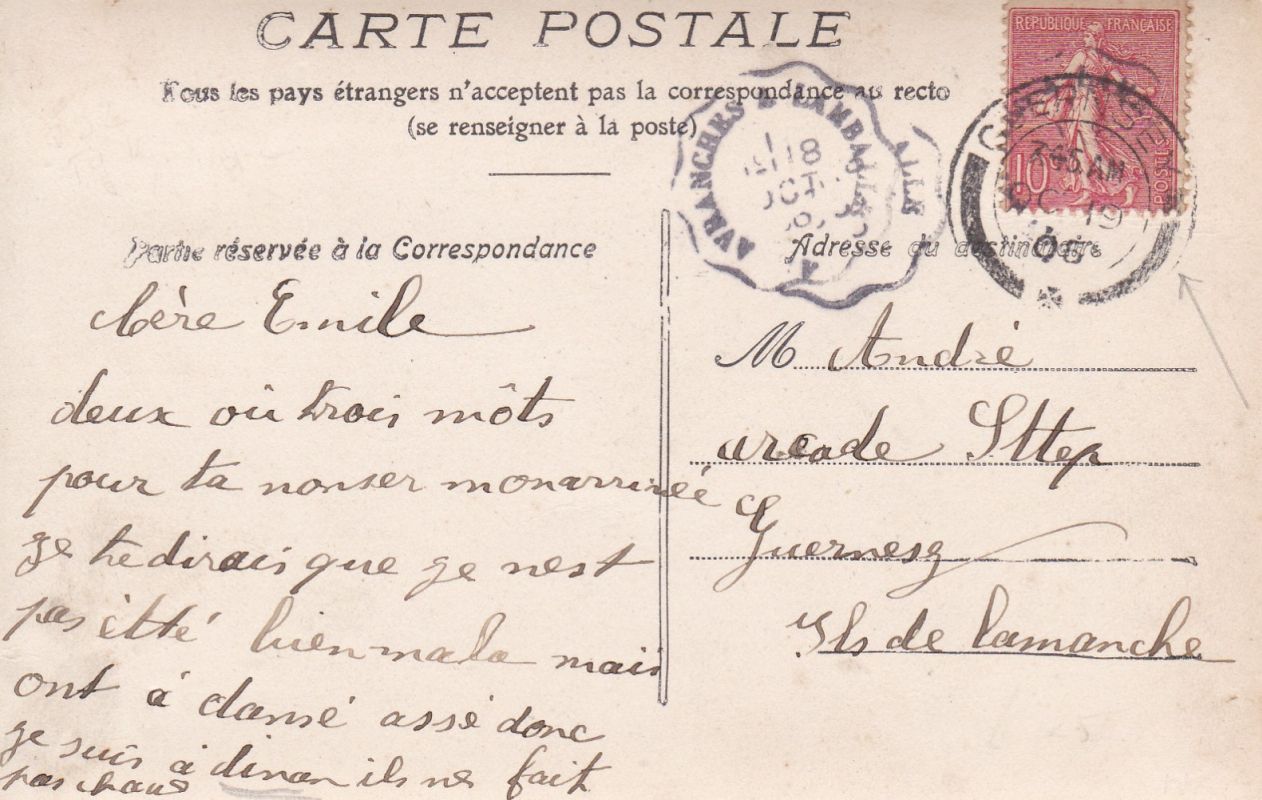 CARTE POSTALE
Tous les pays étrangers n'acceptent pas la correspondance au recto
(se renseigner à la poste)
RÉPUBLIQUE FRANÇAISE
10
POSTES
AVRANCHES A LAMBALLE
18
OCT
ALLE
GUERNSEY
7.45 AM
OC 19
05
Partie réservée à la Correspondance
Cère Emile
deux où trois môts
pour ta nonser monarrivéé
je te dirais que je nest
pas itté bien mala mais
ont á dansé assé donc
je suis á dinan ils ne fait
pas chaus
Adresse du destinataire
M André
arcade Sttep
Guernesy
Ils de lamanche